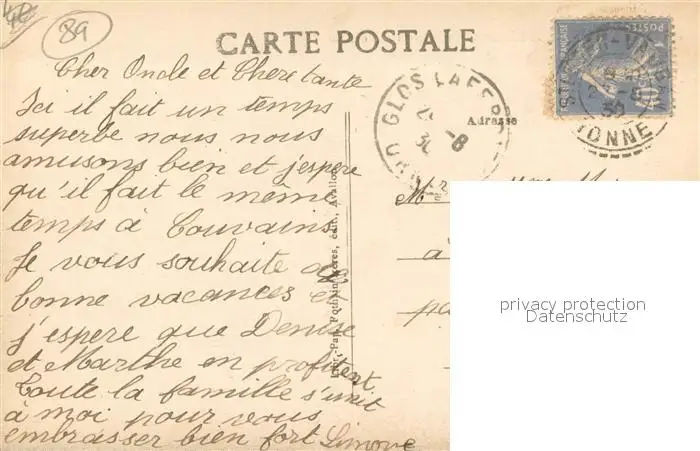 89
CARTE POSTALE
Cher Oncle et Chere tante
Ici il fait un temps
superbe nous nous
amusons bien et j'espere
qu'il fait le même
temps à Couvains
Je vous souhaite de
bonne vacances et
j'espere que Denise
et Marthe en profitent
Toute la famille s'unit
à moi pour vous
embrasser bien fort Simone
Adresse
GLOS LA FER
YONNE
Avallon
M
à
pa
privacy protection
Datenschutz